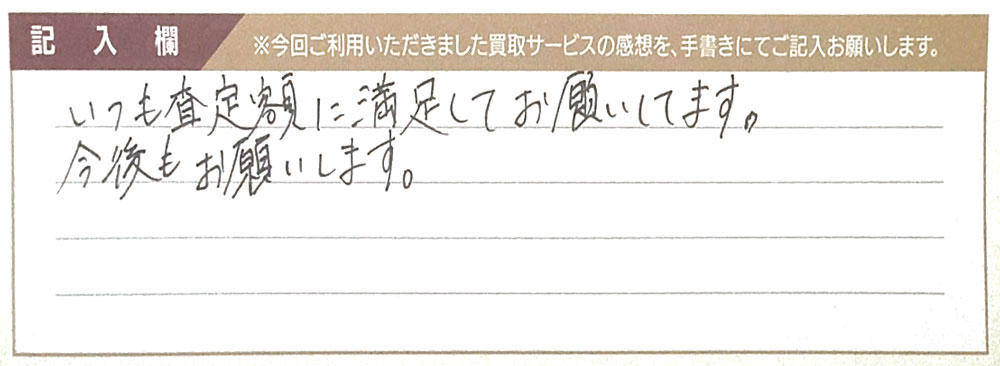 記入欄
※今回ご利用いただきました買取サービスの感想を、手書きにてご記入お願いします。
いつも査定額に満足してお願いしてます。
今後もお願いします。